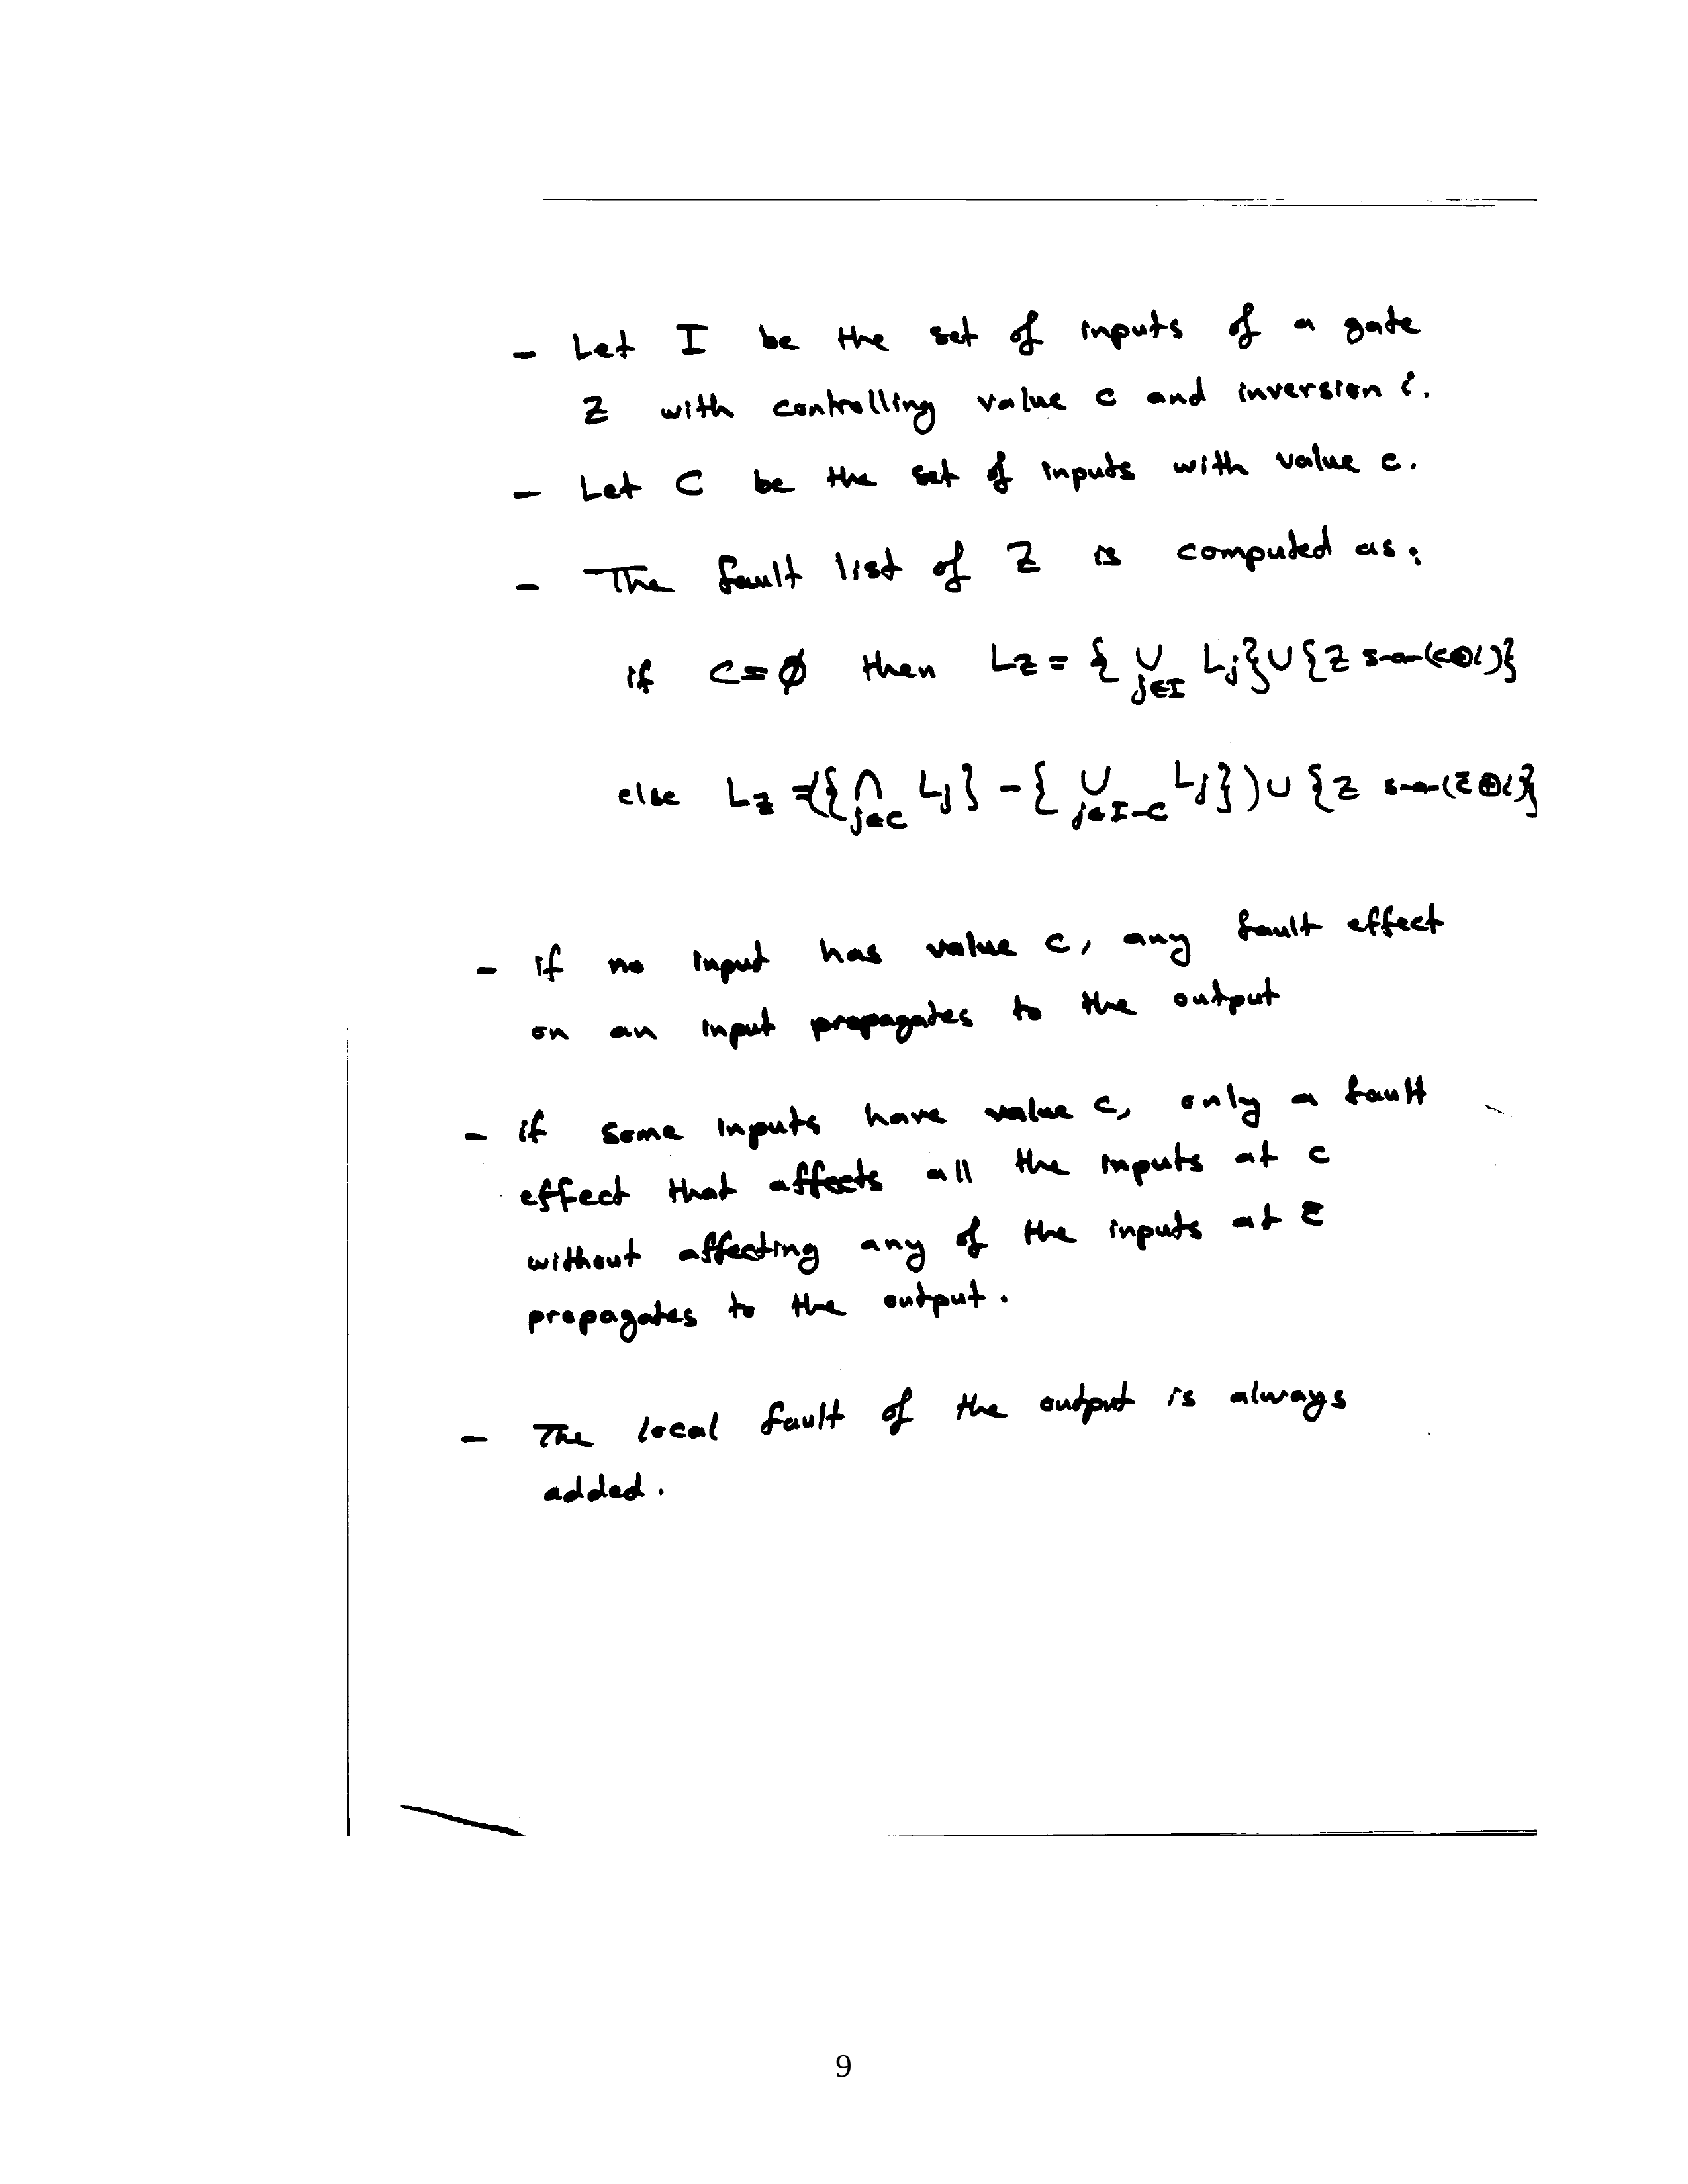 - Let I be the set of inputs of a gate
Z with controlling value c and inversion i.
- Let C be the set of inputs with value c.
- The fault list of Z is computed as:
if C = ∅ then L_Z = {∪_{j∈I} L_j} ∪ {Z s-a-(c⊕i)}
else L_Z = ({∩_{j∈C} L_j} - {∪_{j∈I-C} L_j}) ∪ {Z s-a-(c̄⊕i)}
- if no input has value c, any fault effect
on an input propagates to the output
- if some inputs have value c, only a fault
effect that affects all the inputs at c
without affecting any of the inputs at c̄
propagates to the output.
- The local fault of the output is always
added.
9